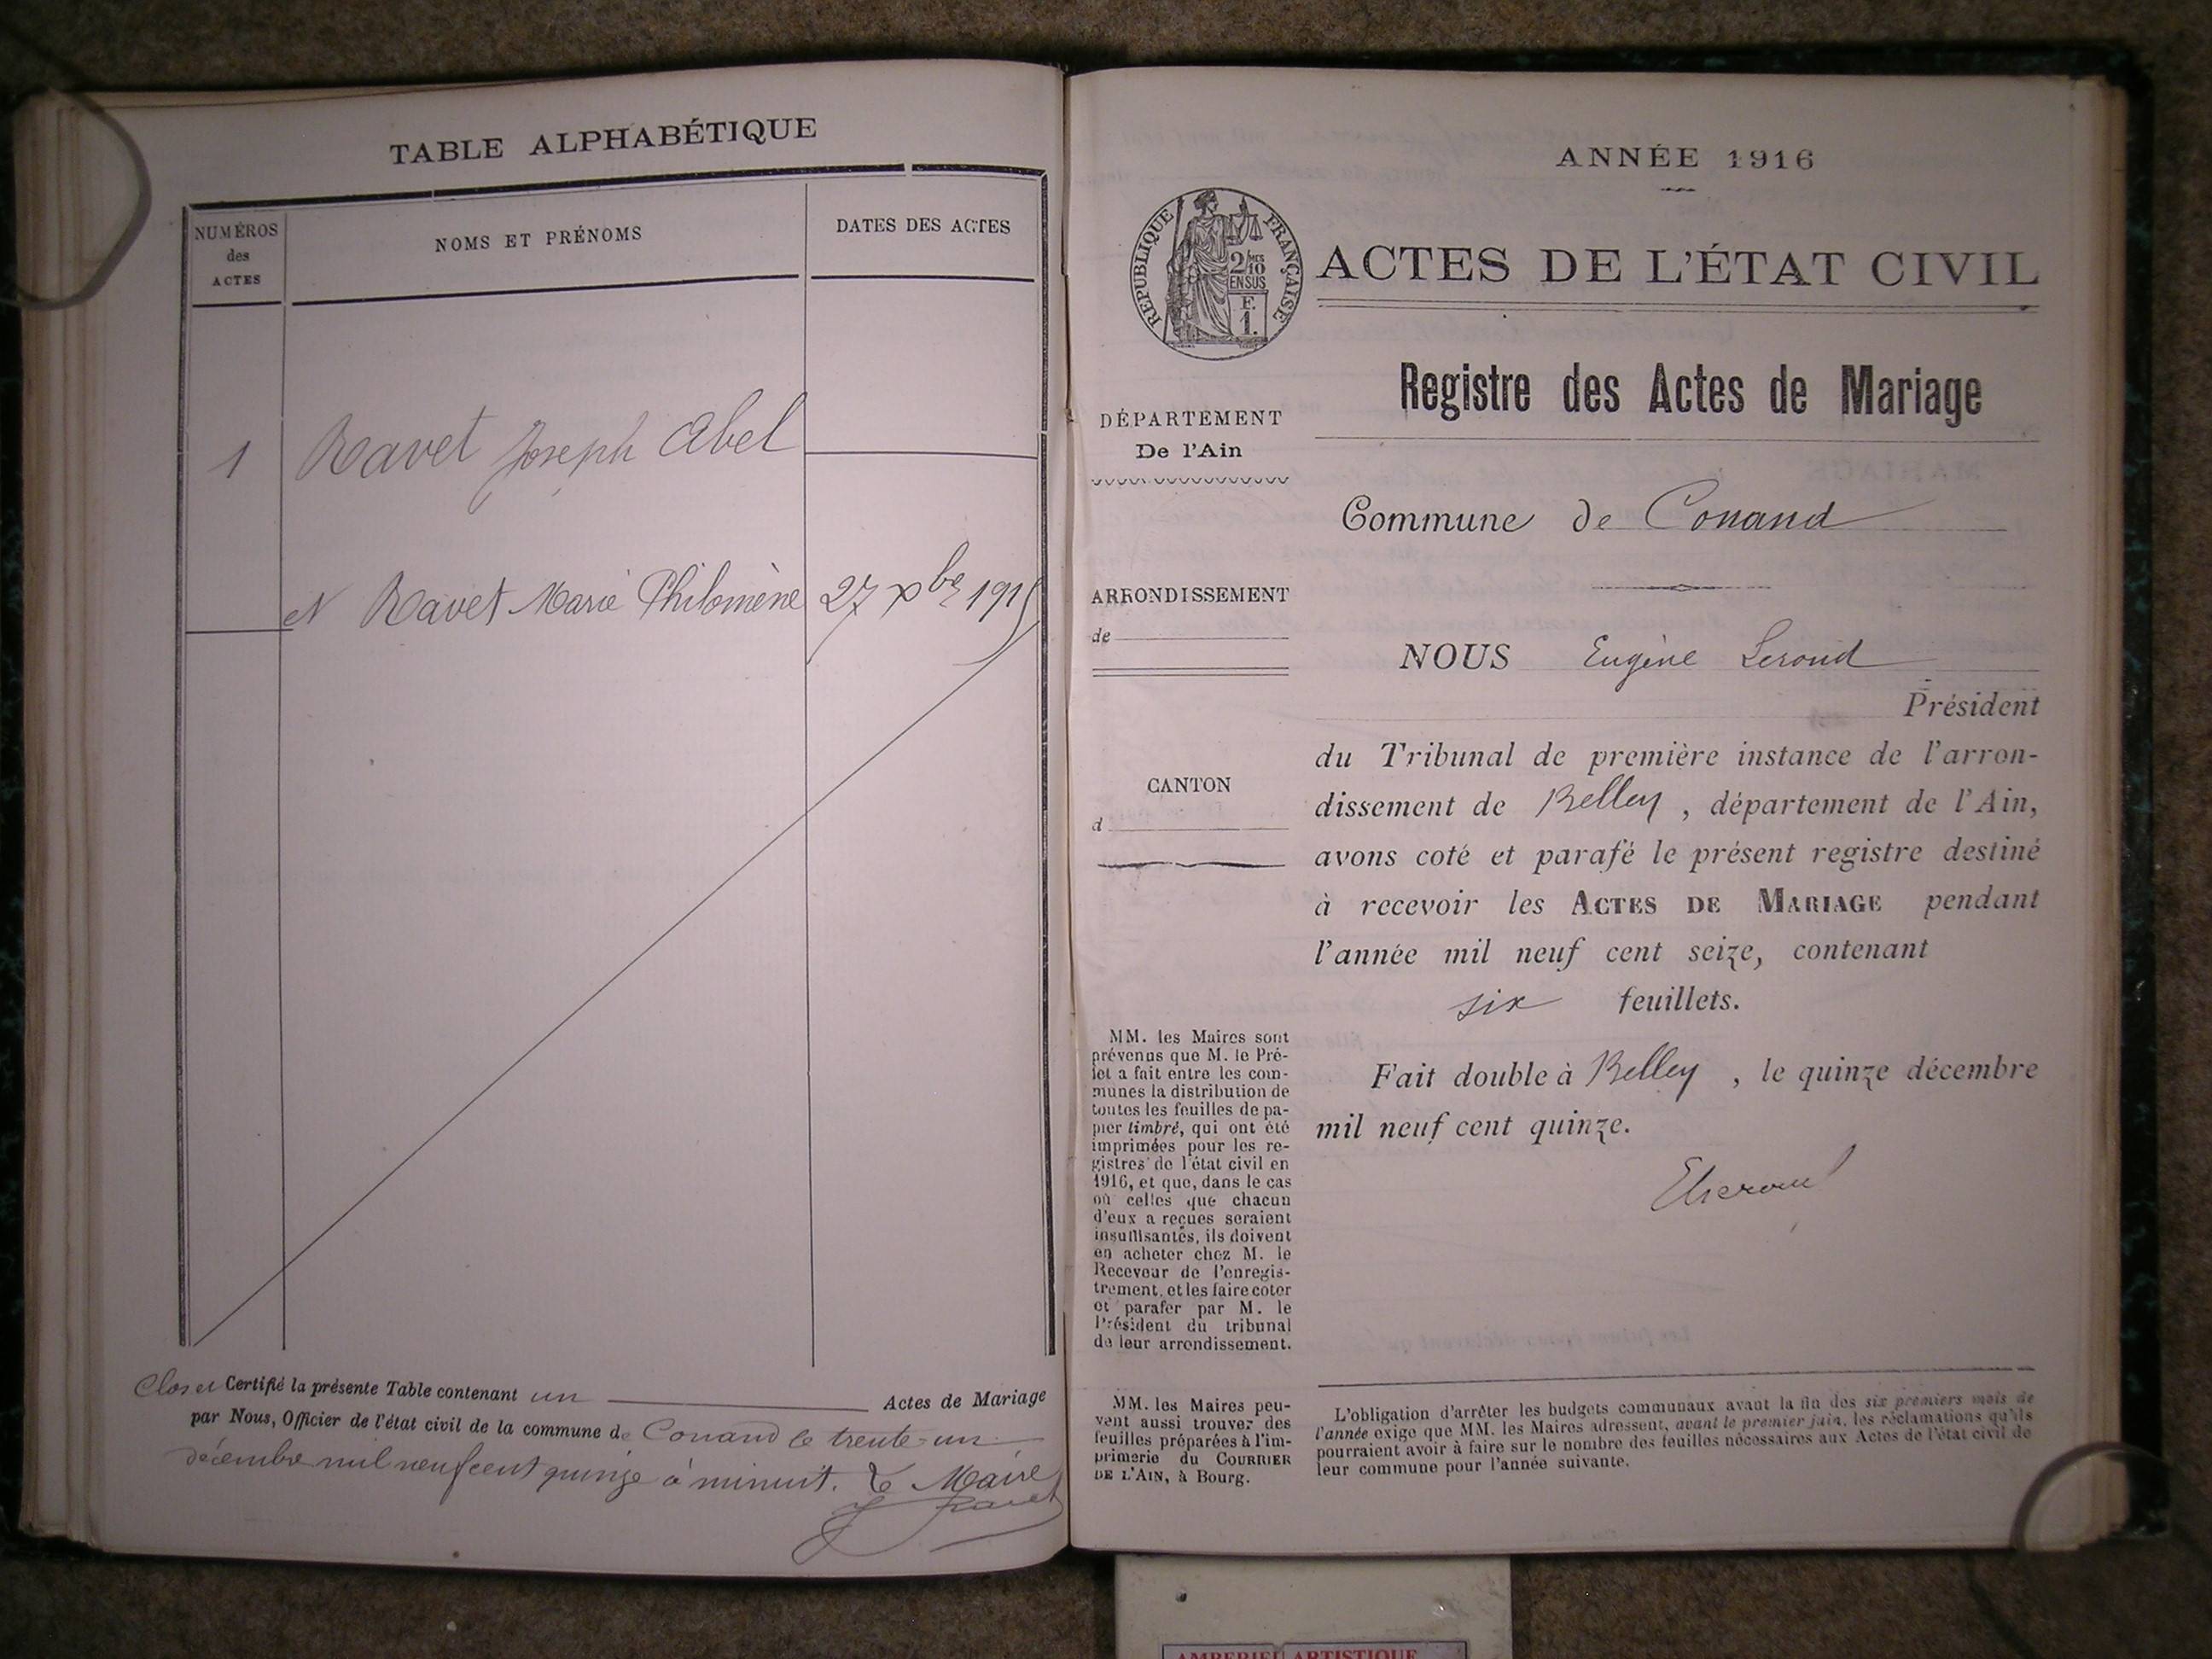 TABLE ALPHABÉTIQUE
NUMÉROS
des
ACTES
NOMS ET PRÉNOMS
DATES DES ACTES
1 Ravet Joseph Abel
et Ravet Marie Philomène 27 xbre 1915
Clos et Certifié la présente Table contenant un Actes de Mariage
par Nous, Officier de l'état civil de la commune de Conand le trente-un
décembre mil neuf cent quinze à minuit. Le Maire
J Ravet
ANNÉE 1916
RÉPUBLIQUE FRANÇAISE
2/10 MES
EN SUS
F.
1.
ACTES DE L'ÉTAT CIVIL
Registre des Actes de Mariage
DÉPARTEMENT
De l'Ain
Commune de Conand
ARRONDISSEMENT
de
NOUS Eugène
Président
du Tribunal de première instance de l'arron-
dissement de Belley, département de l'Ain,
avons coté et parafé le présent registre destiné
à recevoir les ACTES DE MARIAGE pendant
l'année mil neuf cent seize, contenant
six feuillets.
Fait double à Belley, le quinze décembre
mil neuf cent quinze.
CANTON
d
MM. les Maires sont
prévenus que M. le Pré-
fet a fait entre les com-
munes la distribution de
toutes les feuilles de pa-
pier timbré, qui ont été
imprimées pour les re-
gistres de l'état civil en
1916, et que, dans le cas
où celles que chacun
d'eux a reçues seraient
insuffisantes, ils doivent
en acheter chez M. le
Receveur de l'enregis-
trement, et les faire coter
et parafer par M. le
Président du tribunal
de leur arrondissement.
MM. les Maires peu-
vent aussi trouver des
feuilles préparées à l'im-
primerie du COURRIER
DE L'AIN, à Bourg.
L'obligation d'arrêter les budgets communaux avant la fin des six premiers mois de
l'année exige que MM. les Maires adressent, avant le premier juin, les réclamations qu'ils
pourraient avoir à faire sur le nombre des feuilles nécessaires aux Actes de l'état civil de
leur commune pour l'année suivante.
AMBERIEU ARTISTIQUE